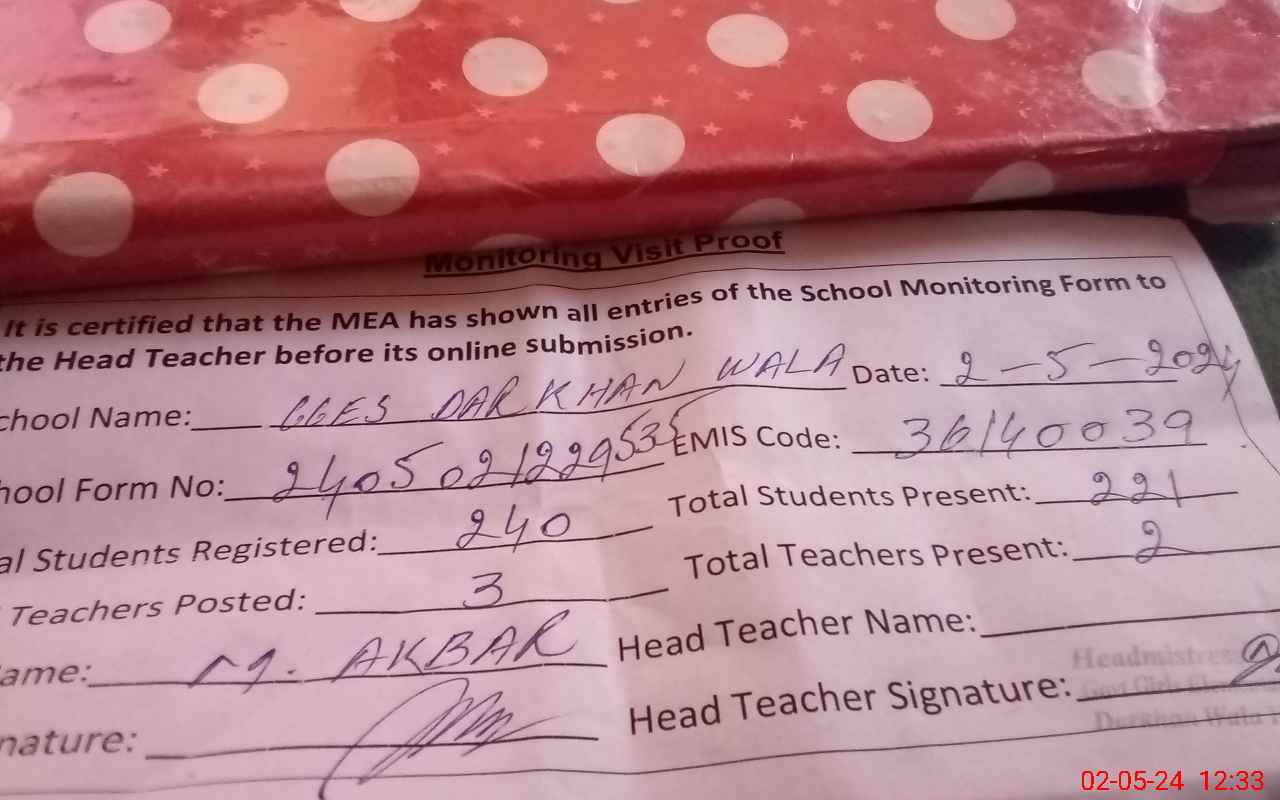 Monitoring Visit Proof
It is certified that the MEA has shown all entries of the School Monitoring Form to
the Head Teacher before its online submission.
chool Name: GGES DARKHAN WALA Date: 2-5-2024
hool Form No: 2405021229535 EMIS Code: 36140039
al Students Registered: 240 Total Students Present: 221
Teachers Posted: 3 Total Teachers Present: 2
ame: M. AKBAR Head Teacher Name:
nature: Head Teacher Signature:
Headmistress
Govt Girls
Wala
02-05-24 12:33